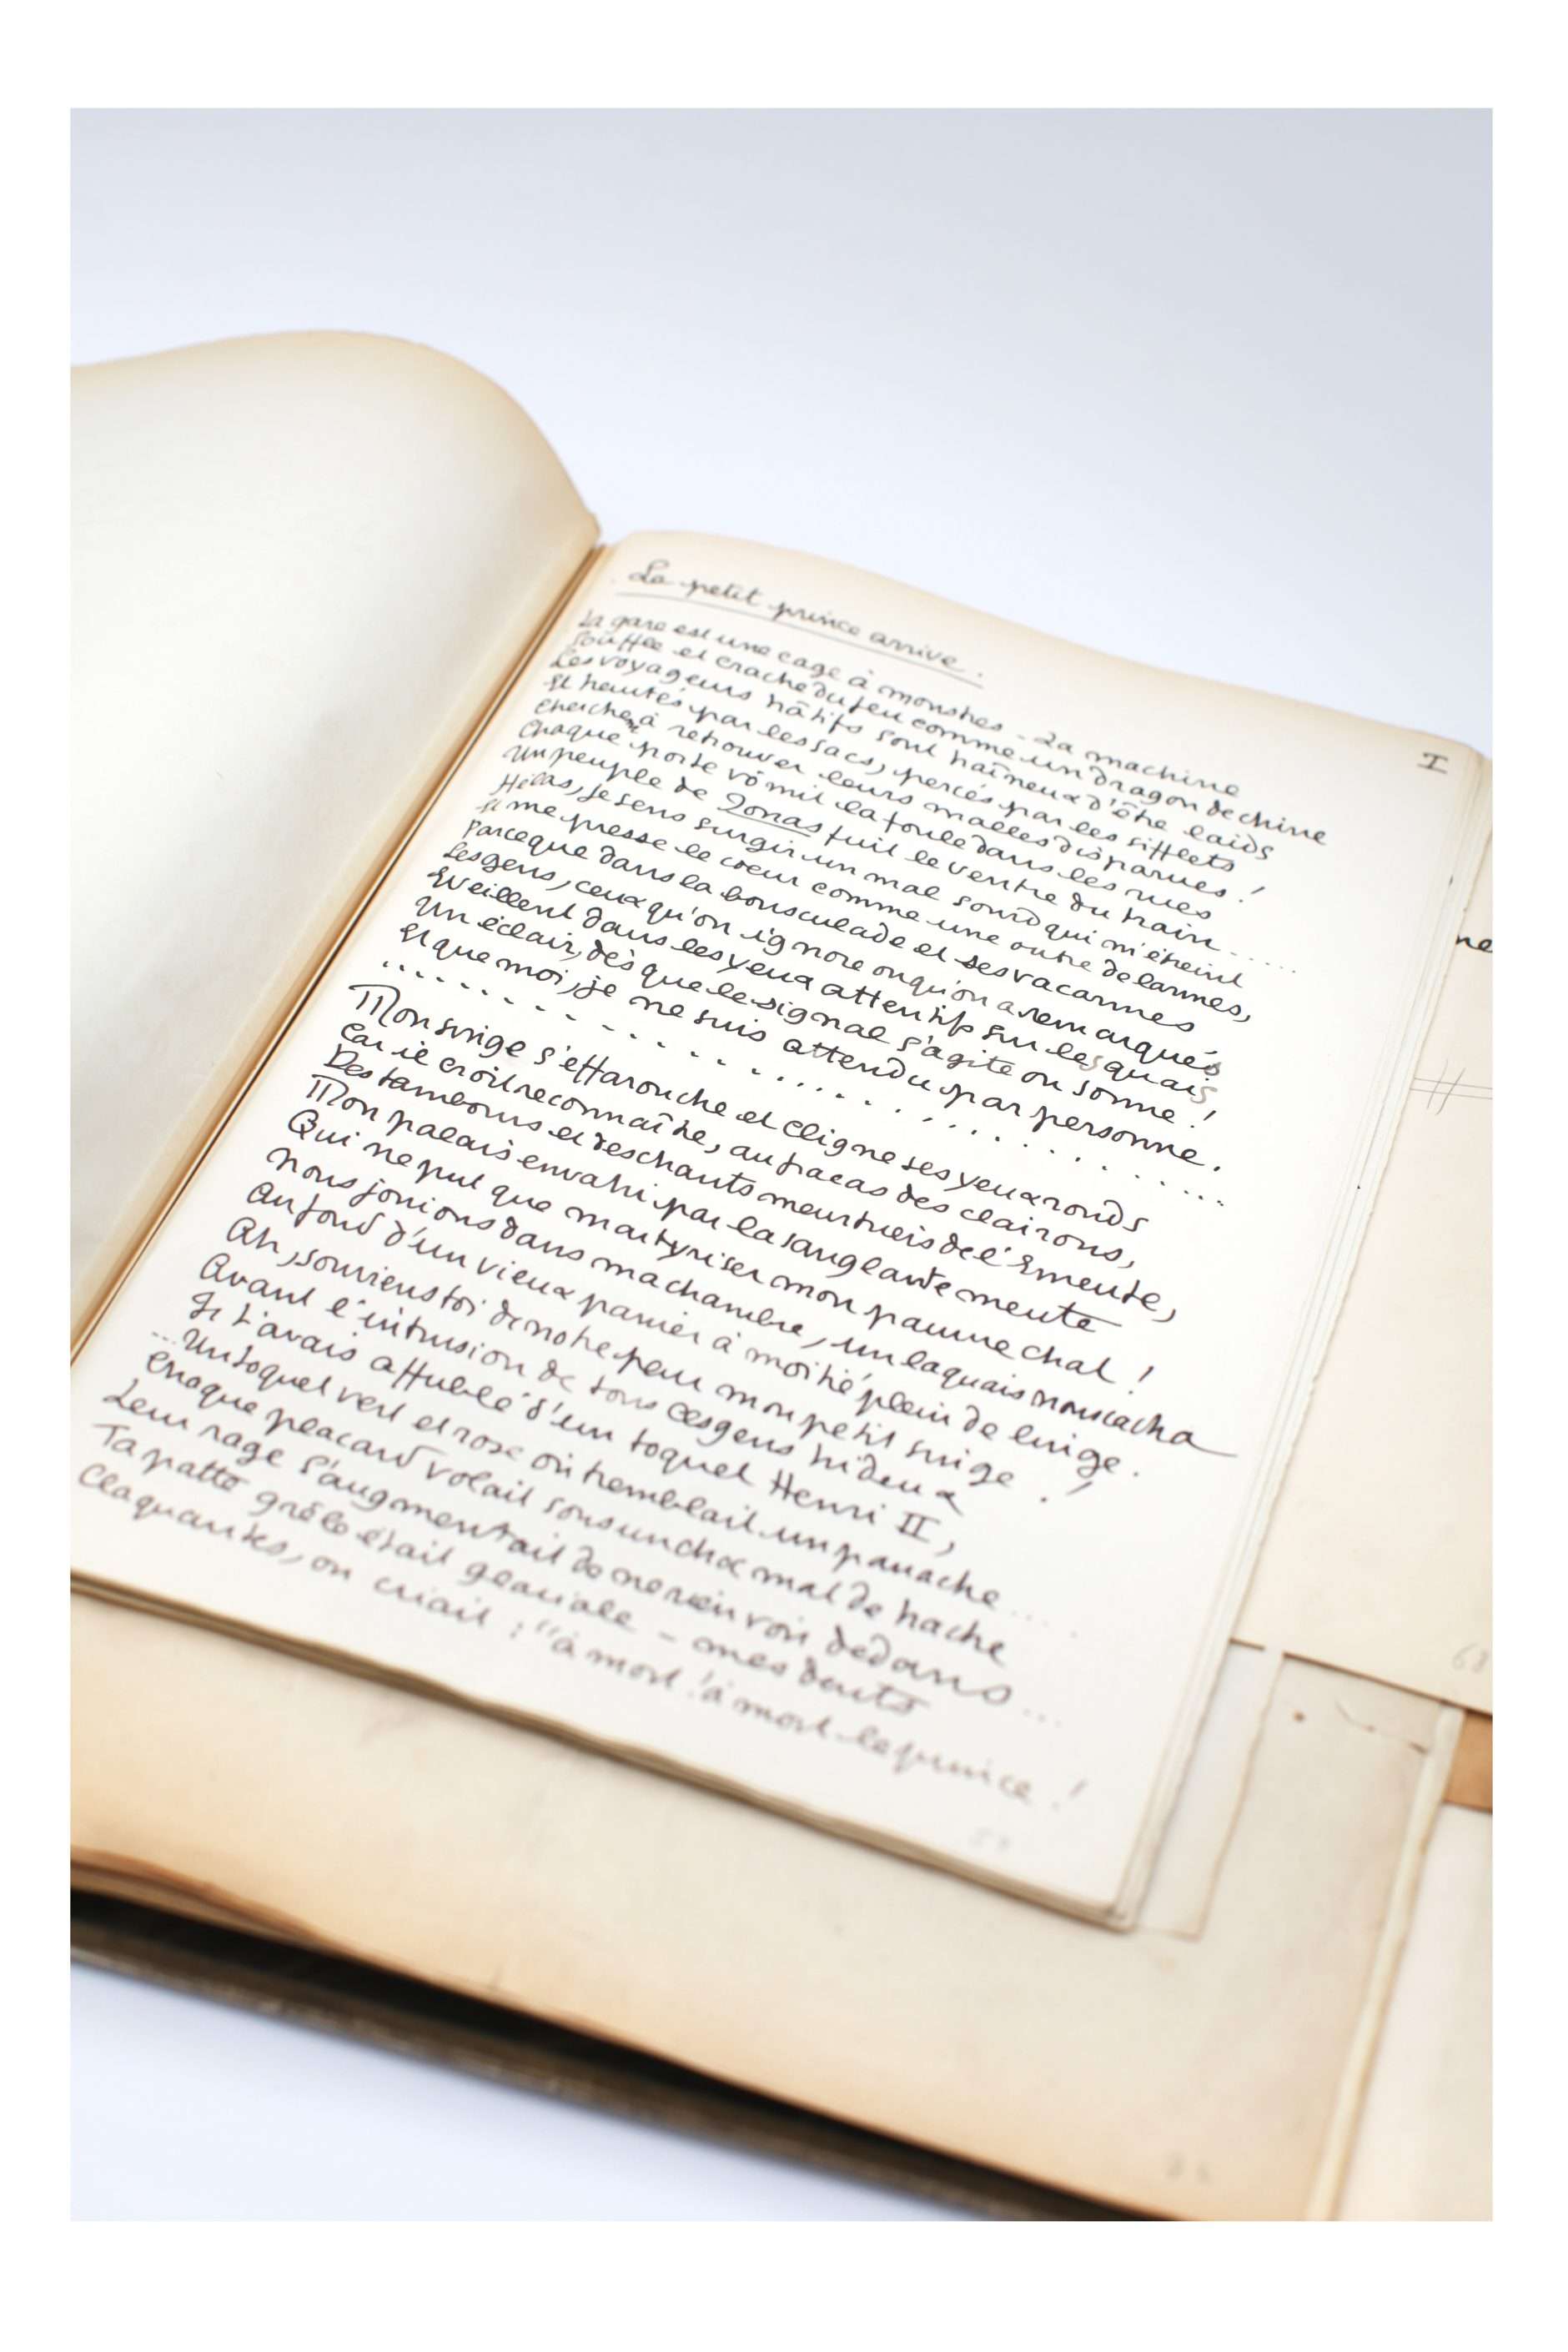 Le petit prince arrive.
I
La gare est une cage à monstres - La machine
Souffle et crache du feu comme un dragon de chine
Les voyageurs hâtifs sont haîneux d'être laids
Et heurtés par les sacs, percés par les sifflets
Cherchent à retrouver leurs malles disparues !
Chaque porte vômit la foule dans les rues
Un peuple de Jonas fuit le ventre du train.....
Hélas, je sens surgir un mal sourd qui m'étreint
Et me presse le coeur comme une outre de larmes,
Parceque dans la bousculade et ses vacarmes
Les gens, ceux qu'on ignore ou qu'on a remarqués
Eveillent dans les yeux attentifs sur les quais
Un éclair, dès que le signal s'agite ou sonne !
Et que moi, je ne suis attendu par personne.
. . . . . . . . . . . . . . . . . . . . . . . .
Mon singe s'effarouche et cligne ses yeux ronds
Car il croit reconnaître, au fracas des clairons,
Des tambours et des chants meurtriers de l'Emeute,
Mon palais envahi par la sanglante meute
Qui ne put que martyriser mon pauvre chat !
Nous jouions dans ma chambre, un laquais nous cacha
Au fond d'un vieux panier à moitié plein de linge.
Ah, souviens toi de notre peur mon petit singe !
Avant l'intrusion de tous ces gens hideux.
Je t'avais affublé d'un toquet Henri II,
...Un toquet vert et rose où tremblait un panache...
Chaque placard volait sous un choc mat de hache
Leur rage s'augmentait de ne rien voir dedans...
Ta patte grêle était glaciale - mes dents
Claquantes, on criait : "à mort ! à mort le prince !
ne
68